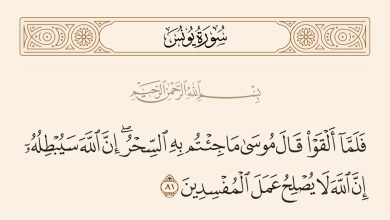 سُورَةُ يُونُسَ
بِسْمِ اللَّهِ الرَّحْمَٰنِ الرَّحِيمِ
فَلَمَّآ أَلْقَوْا۟ قَالَ مُوسَىٰ مَا جِئْتُم بِهِ ٱلسِّحْرُ ۖ إِنَّ ٱللَّهَ سَيُبْطِلُهُۥٓ
إِنَّ ٱللَّهَ لَا يُصْلِحُ عَمَلَ ٱلْمُفْسِدِينَ ٨١